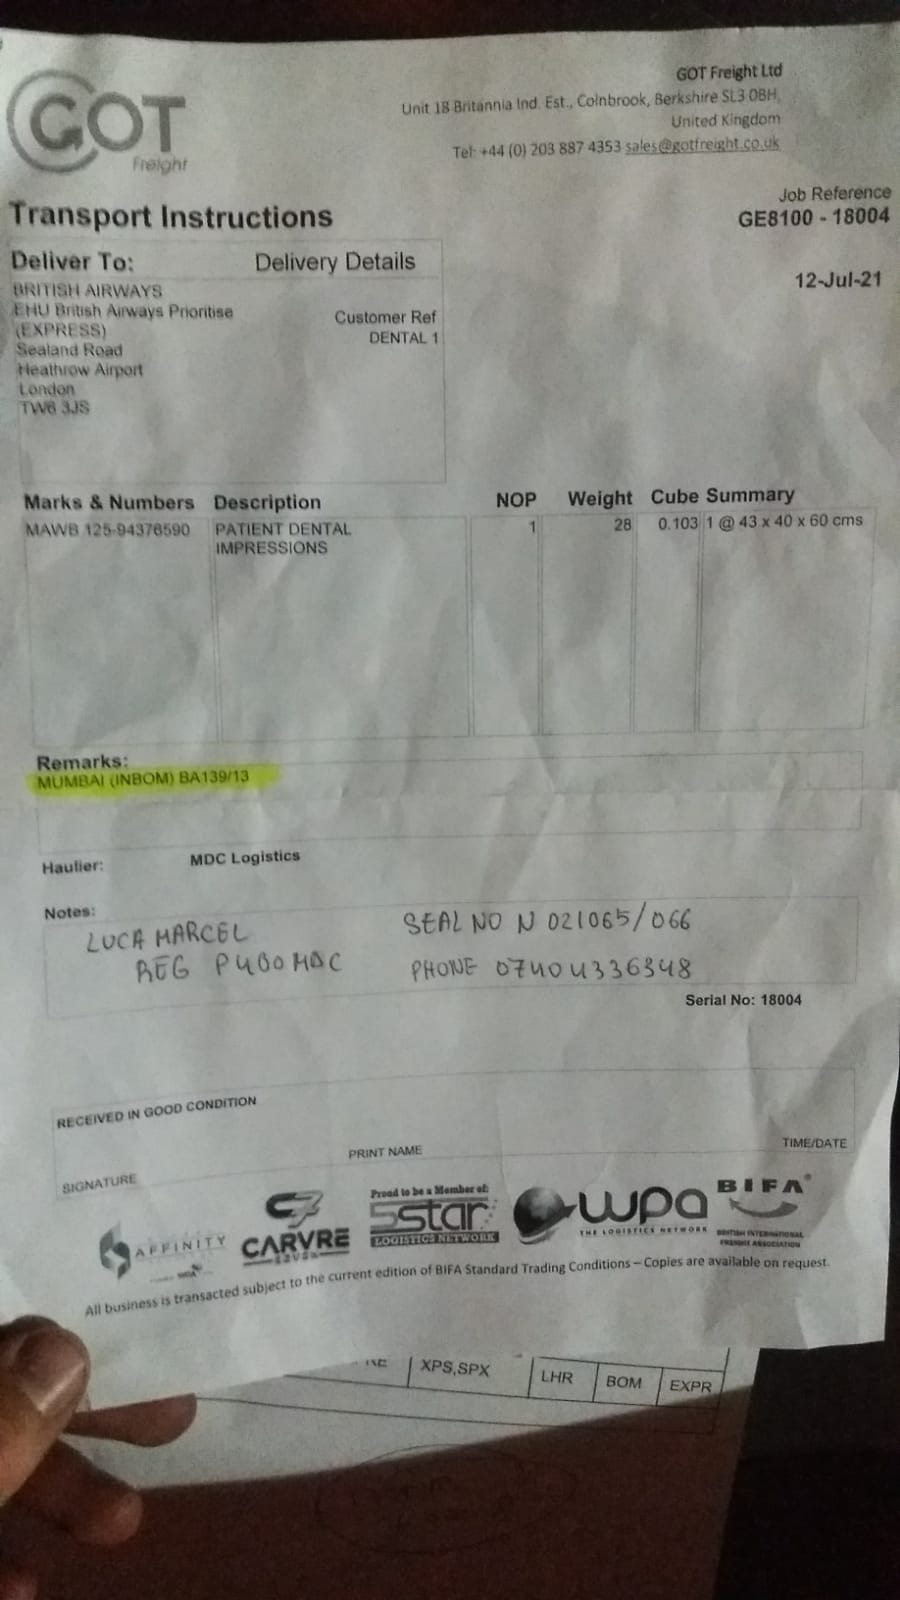 GOT
Freight
GOT Freight Ltd
Unit 18 Britannia Ind. Est., Colnbrook, Berkshire SL3 0BH,
United Kingdom
Tel: +44 (0) 203 887 4353 sales@gotfreight.co.uk
Job Reference
GE8100 - 18004
Transport Instructions
12-Jul-21
Deliver To: Delivery Details
BRITISH AIRWAYS
EHU British Airways Prioritise
(EXPRESS)
Sealand Road
Heathrow Airport
London
TW6 3JS
Customer Ref
DENTAL 1
Marks & Numbers Description NOP Weight Cube Summary
MAWB 125-94376590 PATIENT DENTAL 1 28 0.103 1 @ 43 x 40 x 60 cms
IMPRESSIONS
Remarks:
MUMBAI (INBOM) BA139/13
Haulier: MDC Logistics
Notes:
LUCA MARCEL SEAL NO N 021065/066
REG P400MDC PHONE 07404336348
Serial No: 18004
RECEIVED IN GOOD CONDITION
SIGNATURE PRINT NAME TIME/DATE
AFFINITY
CARVRE
Proud to be a Member of:
5star
LOGISTICS NETWORK
wpa
THE LOGISTICS NETWORK
BIFA
BRITISH INTERNATIONAL
FREIGHT ASSOCIATION
All business is transacted subject to the current edition of BIFA Standard Trading Conditions – Copies are available on request.
XPS,SPX LHR BOM EXPR